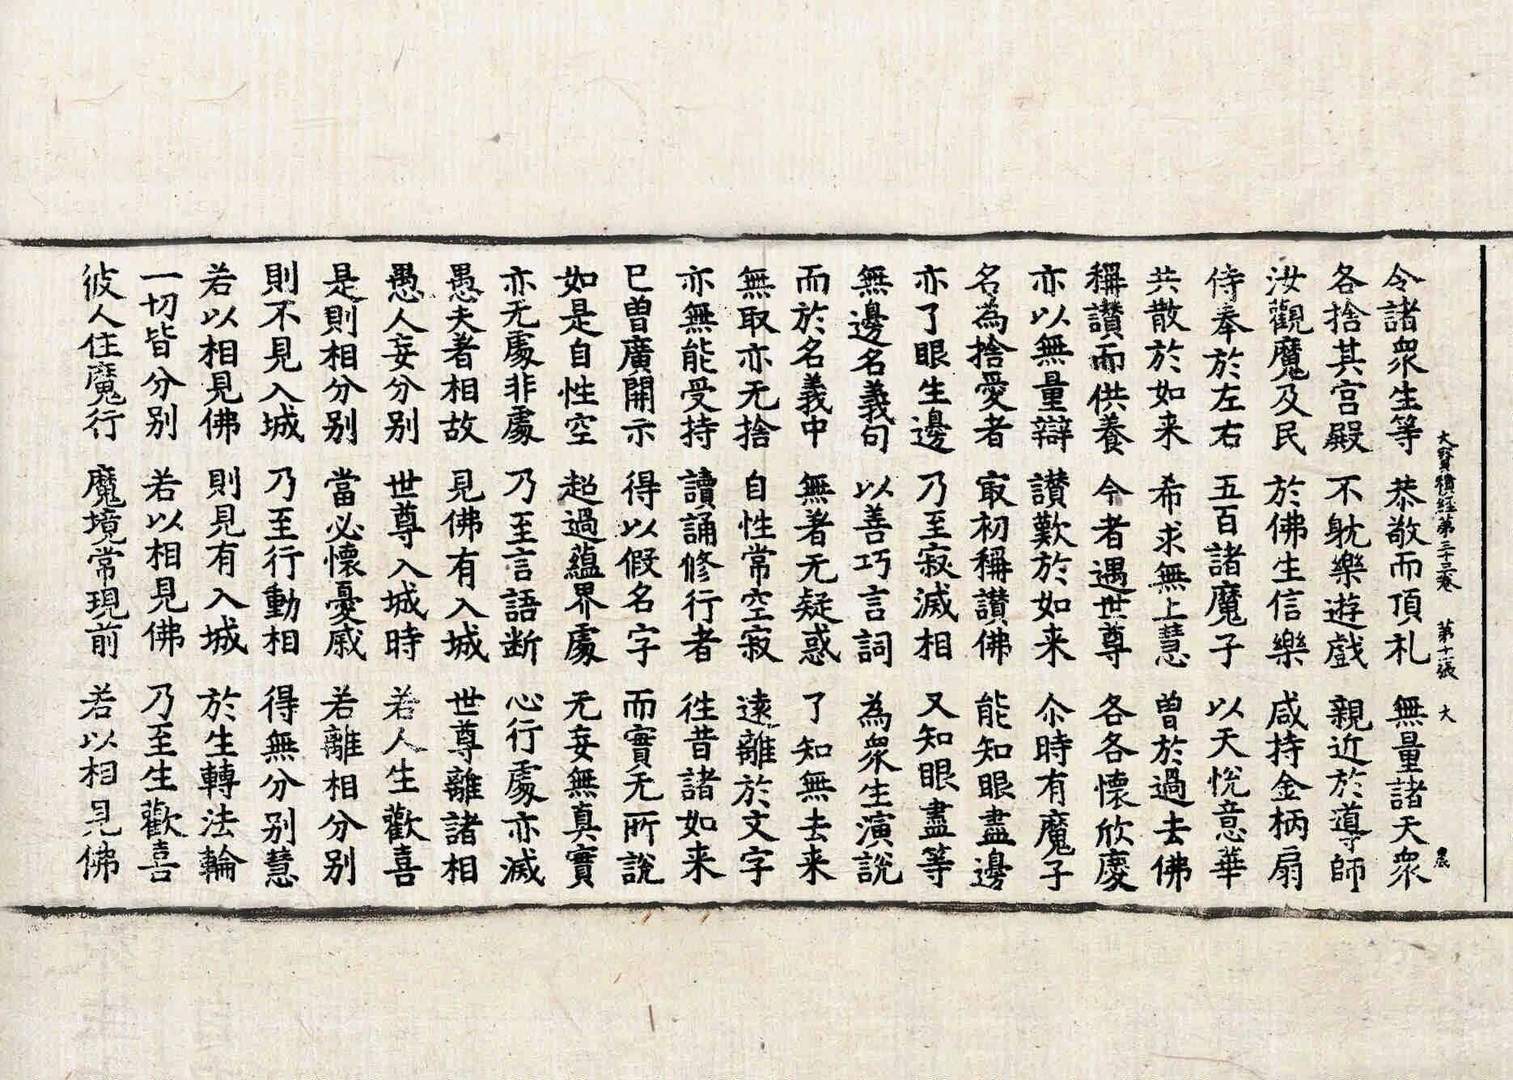 大寶積經第三十三卷 第十一張 大 晨
令諸衆生等 恭敬而頂礼 無量諸天衆
各捨其宮殿 不躭樂遊戲 親近於導師
汝觀魔及民 於佛生信樂 咸持金柄扇
侍奉於左右 五百諸魔子 以天悅意華
共散於如来 希求無上慧 曽於過去佛
稱讃而供養 今者遇世尊 各各懷欣慶
亦以無量辯 讃歎於如来 尒時有魔子
名為捨愛者 冣初稱讃佛 能知眼盡邊
亦了眼生邊 乃至寂滅相 又知眼盡等
無邊名義句 以善巧言詞 為衆生演説
而於名義中 無著无疑惑 了知無去来
無取亦无捨 自性常空寂 遠離於文字
亦無能受持 讀誦修行者 徃昔諸如来
已曽廣開示 得以假名字 而實无所説
如是自性空 超過蘊界處 无妄無真實
亦无處非處 乃至言語断 心行處亦滅
愚夫著相故 見佛有入城 世尊離諸相
愚人妄分别 世尊入城時 若人生歡喜
是則相分别 當必懷憂慼 若離相分别
則不見入城 乃至行動相 得無分别慧
若以相見佛 則見有入城 於生轉法輪
一切皆分别 若以相見佛 乃至生歡喜
彼人住魔行 魔境常現前 若以相見佛